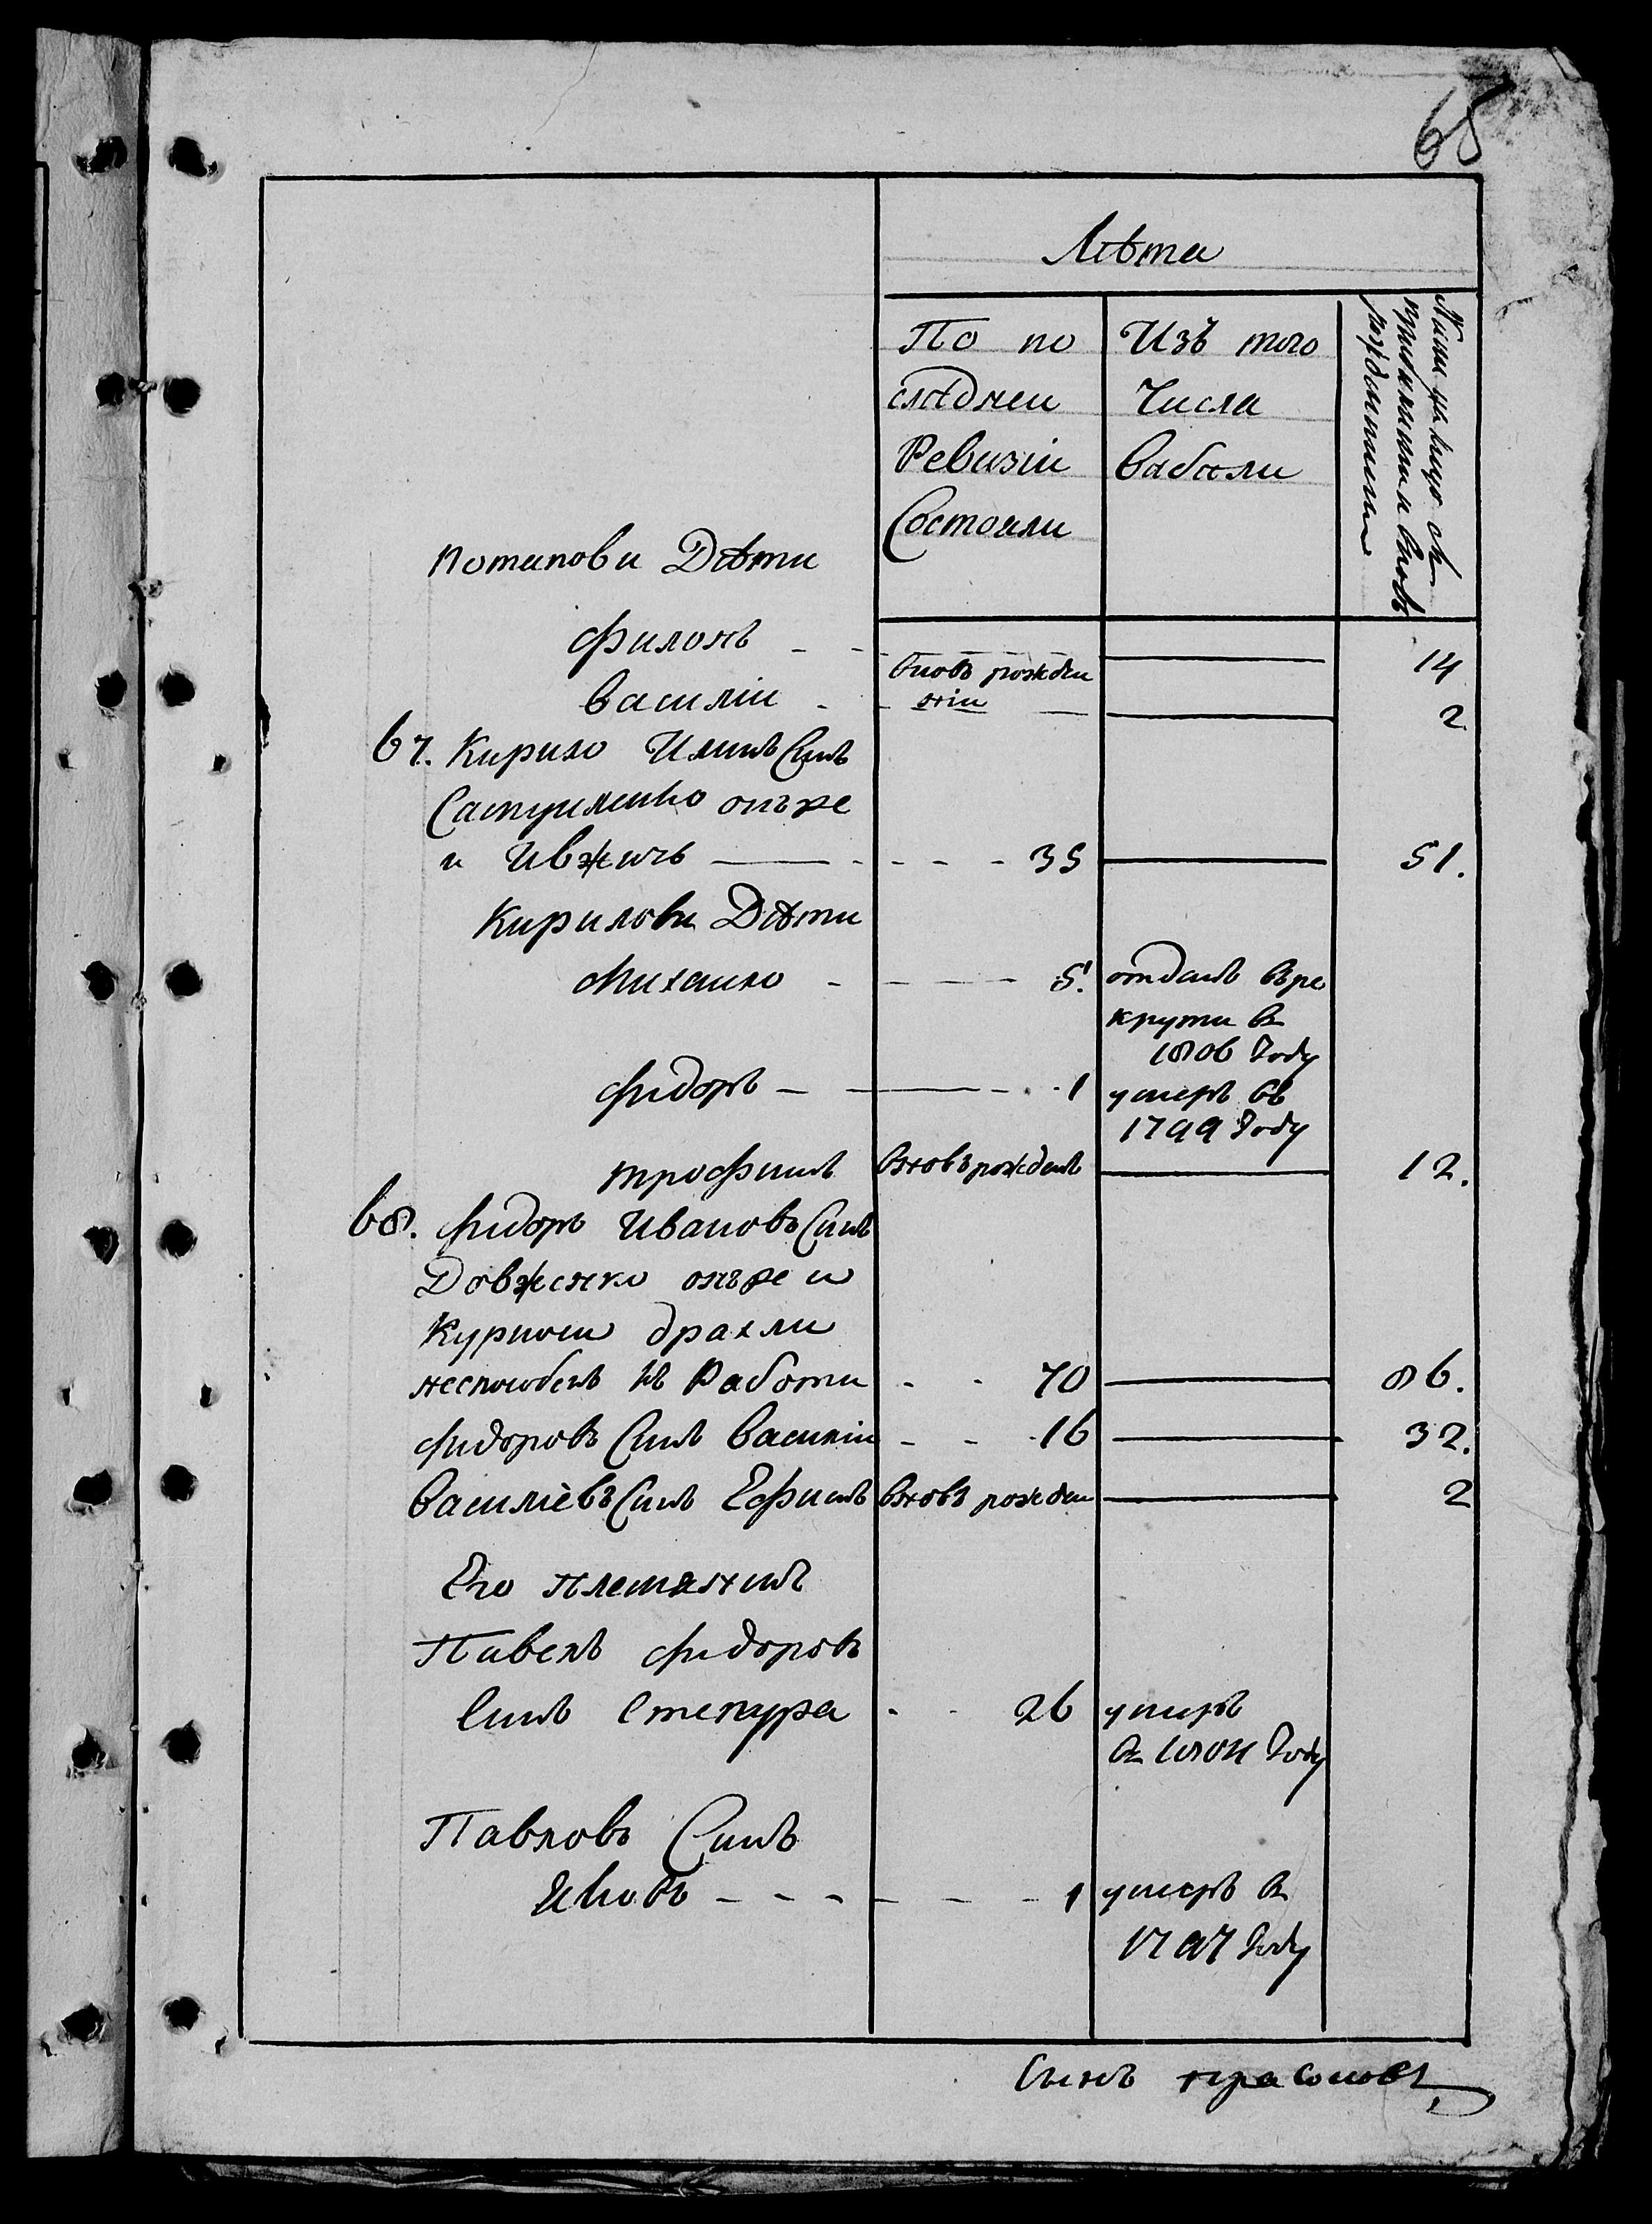 68
Лѣта
По по
слѣднеи
Ревизіи
Состояли
Изъ того
Числа
выбыли
Нынѣ на лицо съ
прибылыми и вновь
рожденными
Потаповы Дѣти
Филонъ - - 14
Василіи - - вновь рожден
ніи 2
67. Кирило Илинъ Синъ
онъ же
и Ивжичъ - - - - 35 51.
Кириловы Дѣти
Михаило - - - - 5. отданъ въ ре
круты въ
1806 Году
Фидоръ - - - 1 умеръ въ
1799 Году
Трофимъ вновь рожденъ 12.
68. Фидоръ Ивановъ Синъ
Довженко онъ же и
Курнои драхли
неспособенъ къ Работи - - 70 86.
Фидоровъ Синъ Василіи - - 16 32.
Василіевъ Синъ Ефимъ вновь рожден 2
Его племянникъ
Павелъ Фидоровъ
Синъ Степура - - 26 умеръ
въ 1804 Году
Павловъ Синъ
Яковъ - - - - - - 1 умеръ въ
1797 Году
Сынъ